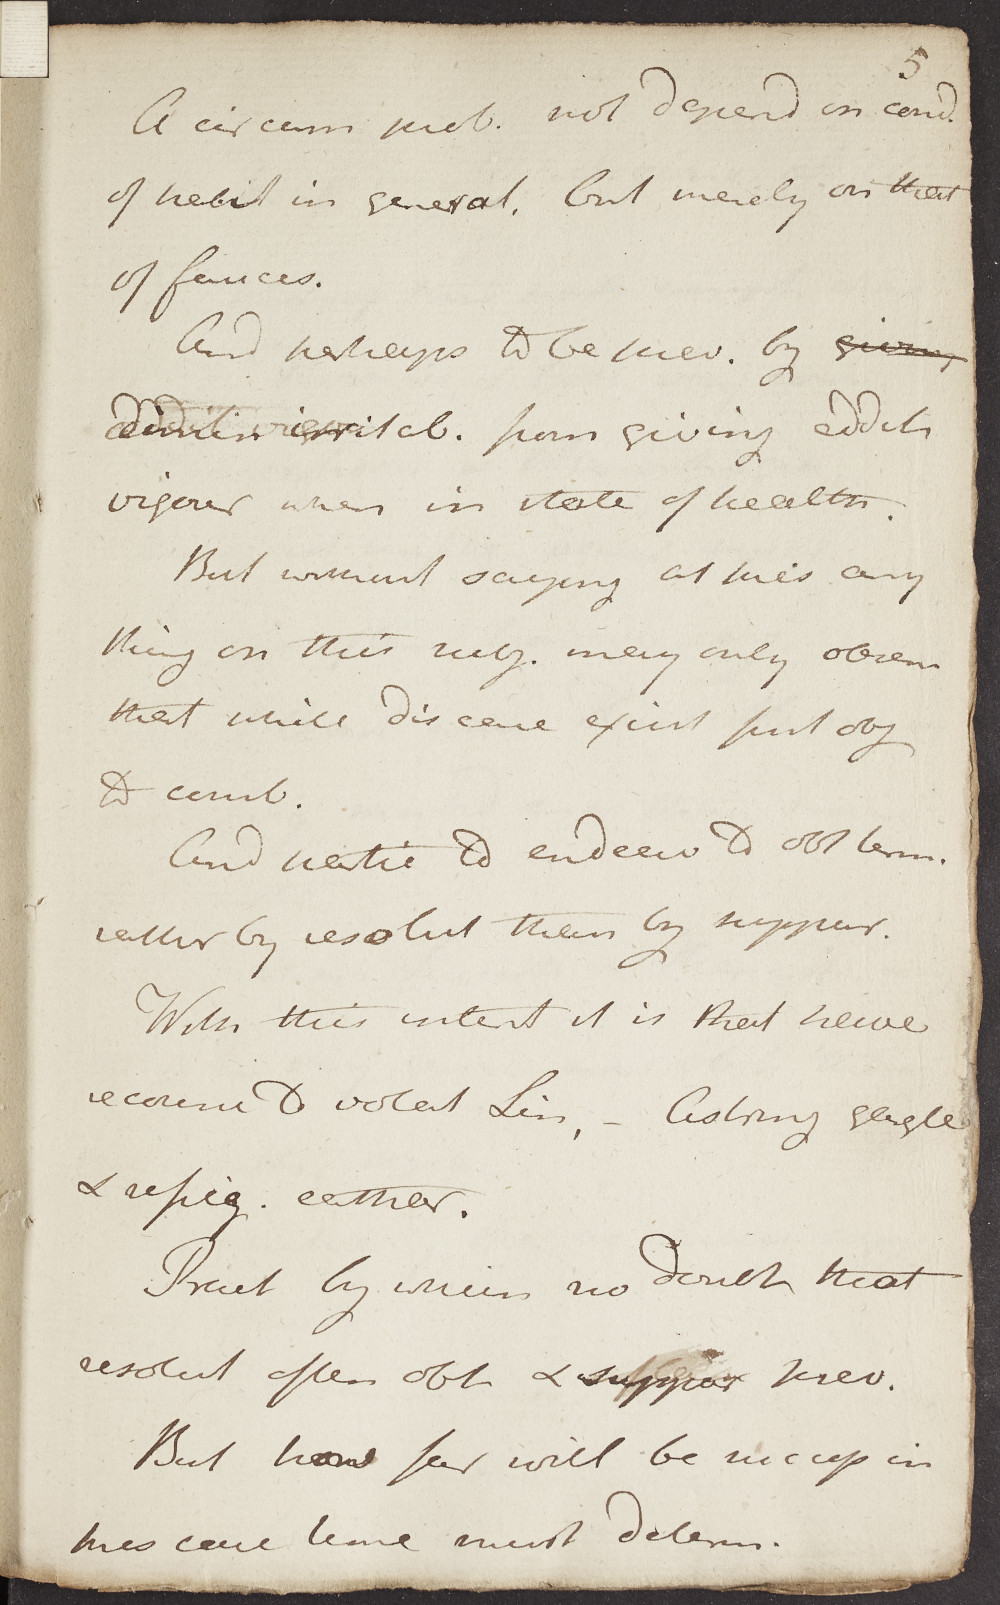 5
A circum prob. not depend on cond.
of habit in general, but merely on that
of fauces.
And perhaps to be prev. by giving
dimin irritab. from giving addit
vigour when in state of health.
But without saying at pres any
thing on this subj. may only observ
that while disease exist first obj
to comb.
And partic to endeav to obt term.
rather by resolut than by suppur.
With this intent it is that have
recourse to volat Lin, – Astring gargle
& refrig. cather.
Pract by which no doubt that
resolut often obt & suppur prev.
But how far will be succesf in
pres case time must determ.